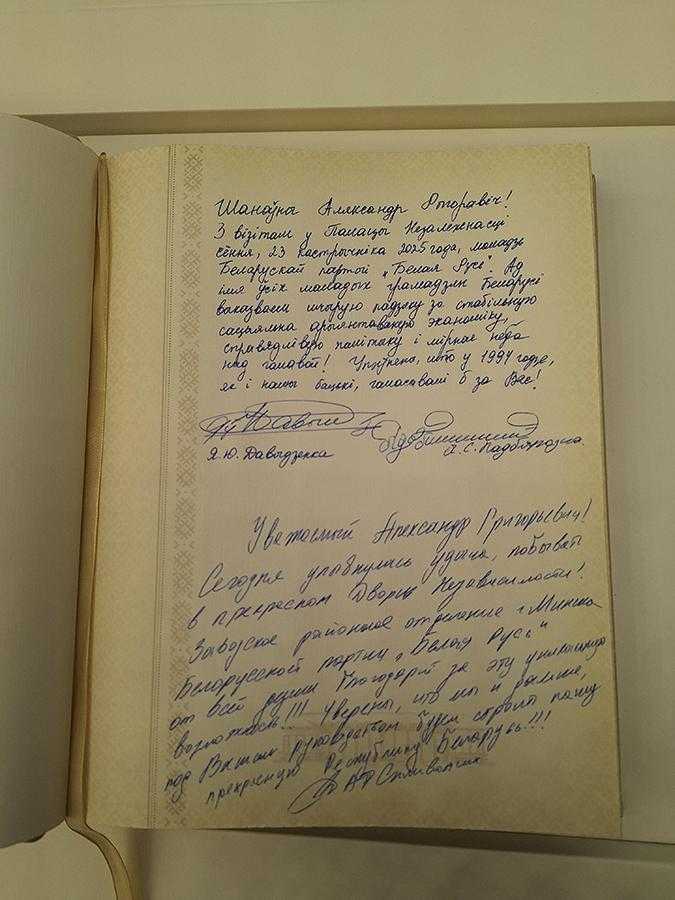 Шаноўны Аляксандр Рыгоравіч!
З візітам у Палацы Незалежнасці
сёння, 23 кастрычніка 2025 года, моладзь
Беларускай партыі „Белая Русь". Ад
імя ўсіх маладых грамадзян Беларусі
выказваем шчырую падзяку за стабільную
сацыяльна арыентаваную эканоміку,
справядлівую палітыку і мірнае неба
над галавой! Упэўнены, што у 1994 годзе,
як і нашы бацькі, галасавалі б за Вас!
Я.Ю. Давыдзенка
А.С. Падбярэзна
Уважаемый Александр Григорьевич!
Сегодня улыбнулась удача, побывать
в прекрасном Дворце Независимости!
Заводское районное отделение г. Минска
Белорусской партии „Белая Русь"
от всей души благодарит за эту уникальную
возможность!!! Уверены, что мы и дальше,
под Вашим руководством будем строить нашу
прекрасную Республику Беларусь!!!